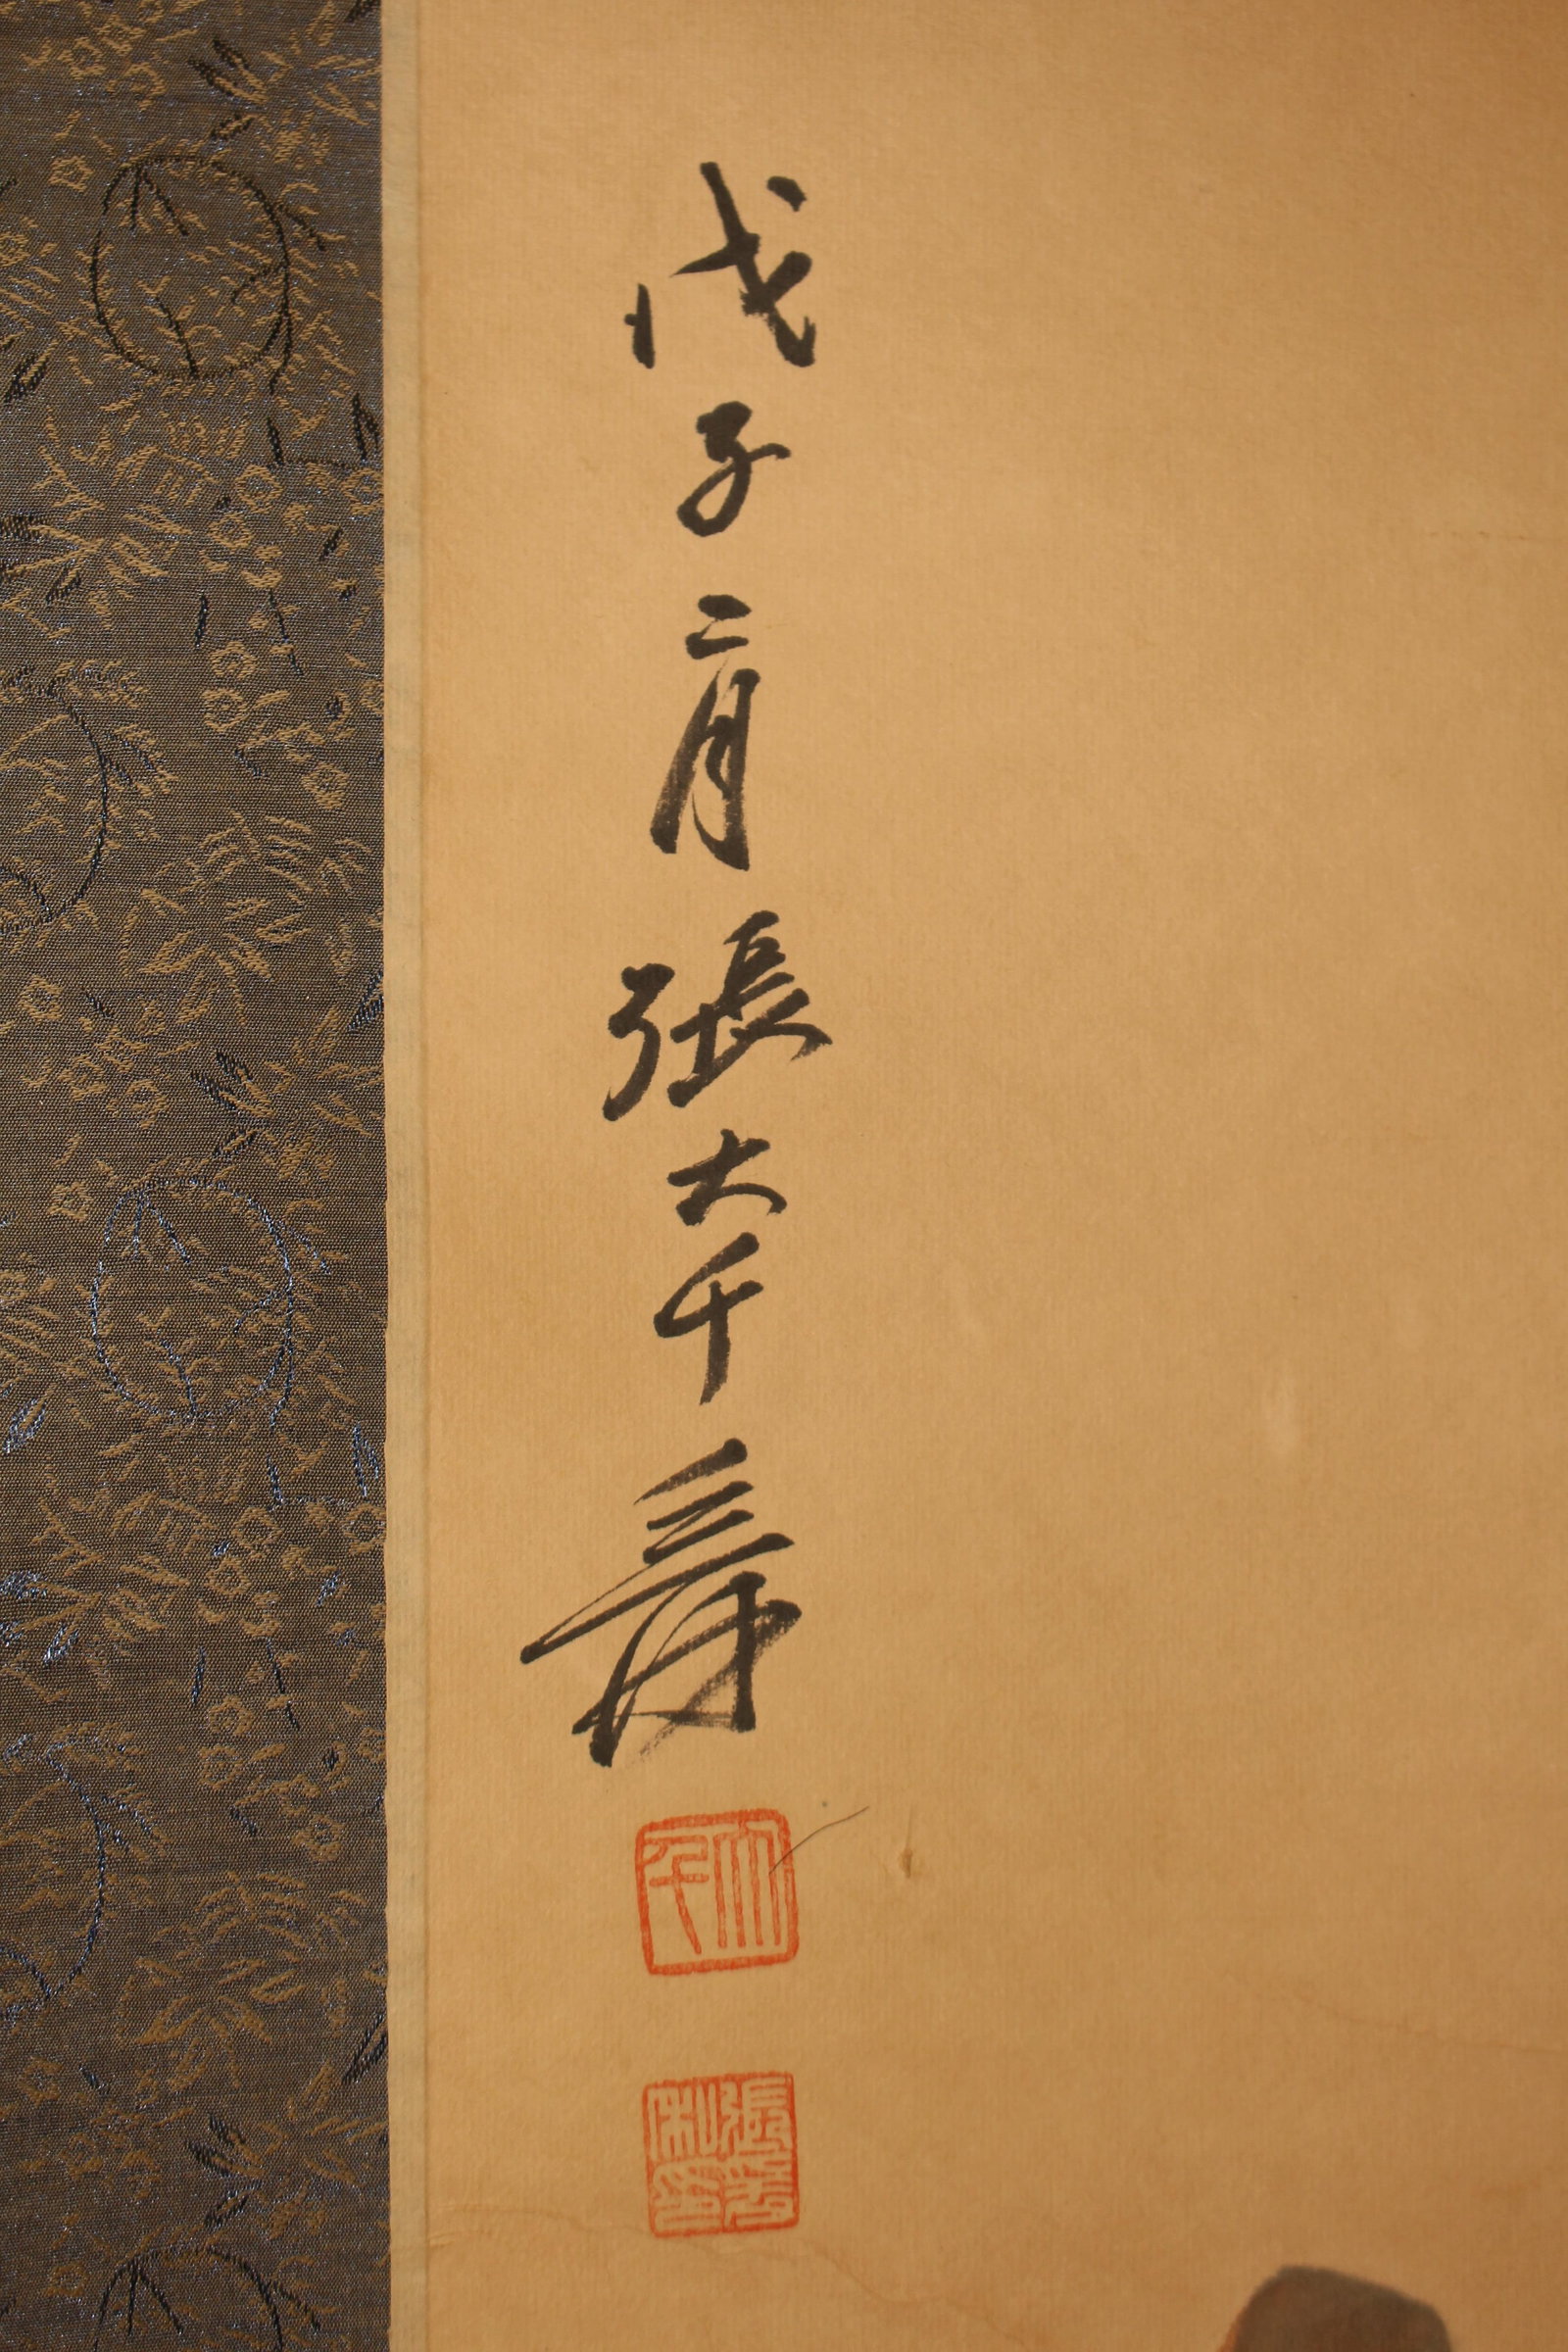 戊子二月張大千爰
大千
張爰私印